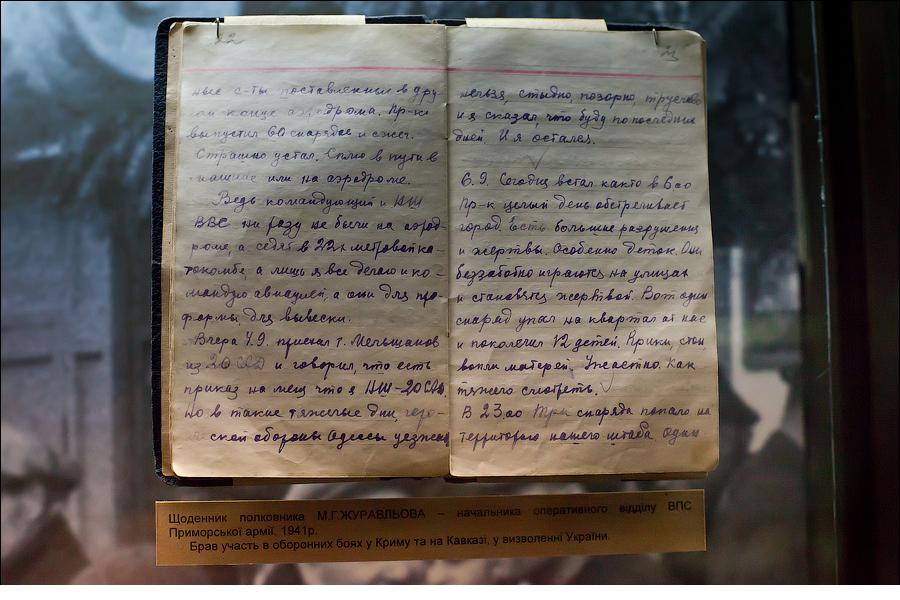 22
ные с-ты поставленным в дру-
гом конце аэродрома. Пр-к
выпустил 60 снарядов и сжег.
Страшно устал. Сплю в пути в
машине или на аэродроме.
Ведь командующий и НШ
ВВС ни разу не были на аэрод-
роме, а сидят в 22х метровой ка-
токомбе, а лишь я все делаю и ко-
мандую авиацией, а они для про-
формы для вывески.
Вчера 4.9. приехал т. Меньшанов
из 20 САД и говорил, что есть
приказ на меня что я НШ-20 САД.
но в такие тяжелые дни, геро-
ической обороны Одессы уезжать
нельзя, стыдно, позорно, трусливо
и я сказал что буду по последних
дней. И я остался.
6.9. Сегодня встал както в 6 00
Пр-к целый день обстреливает
город. Есть большие разрушения
и жертвы. Особенно деток. Они
беззаботно играются на улицах
и становятся жертвой. Вот один
снаряд упал на квартал от нас
и поколечил 12 детей. Крики, стон
вопли матерей. Ужастно. Как
тяжело смотреть.
В 23.00 три снаряда попало на
территорию нашего штаба один
Щоденник полковника М.Г.ЖУРАВЛЬОВА – начальника оперативного відділу ВПС
Приморської армії. 1941р.
Брав участь в оборонних боях у Криму та на Кавказі, у визволенні України.